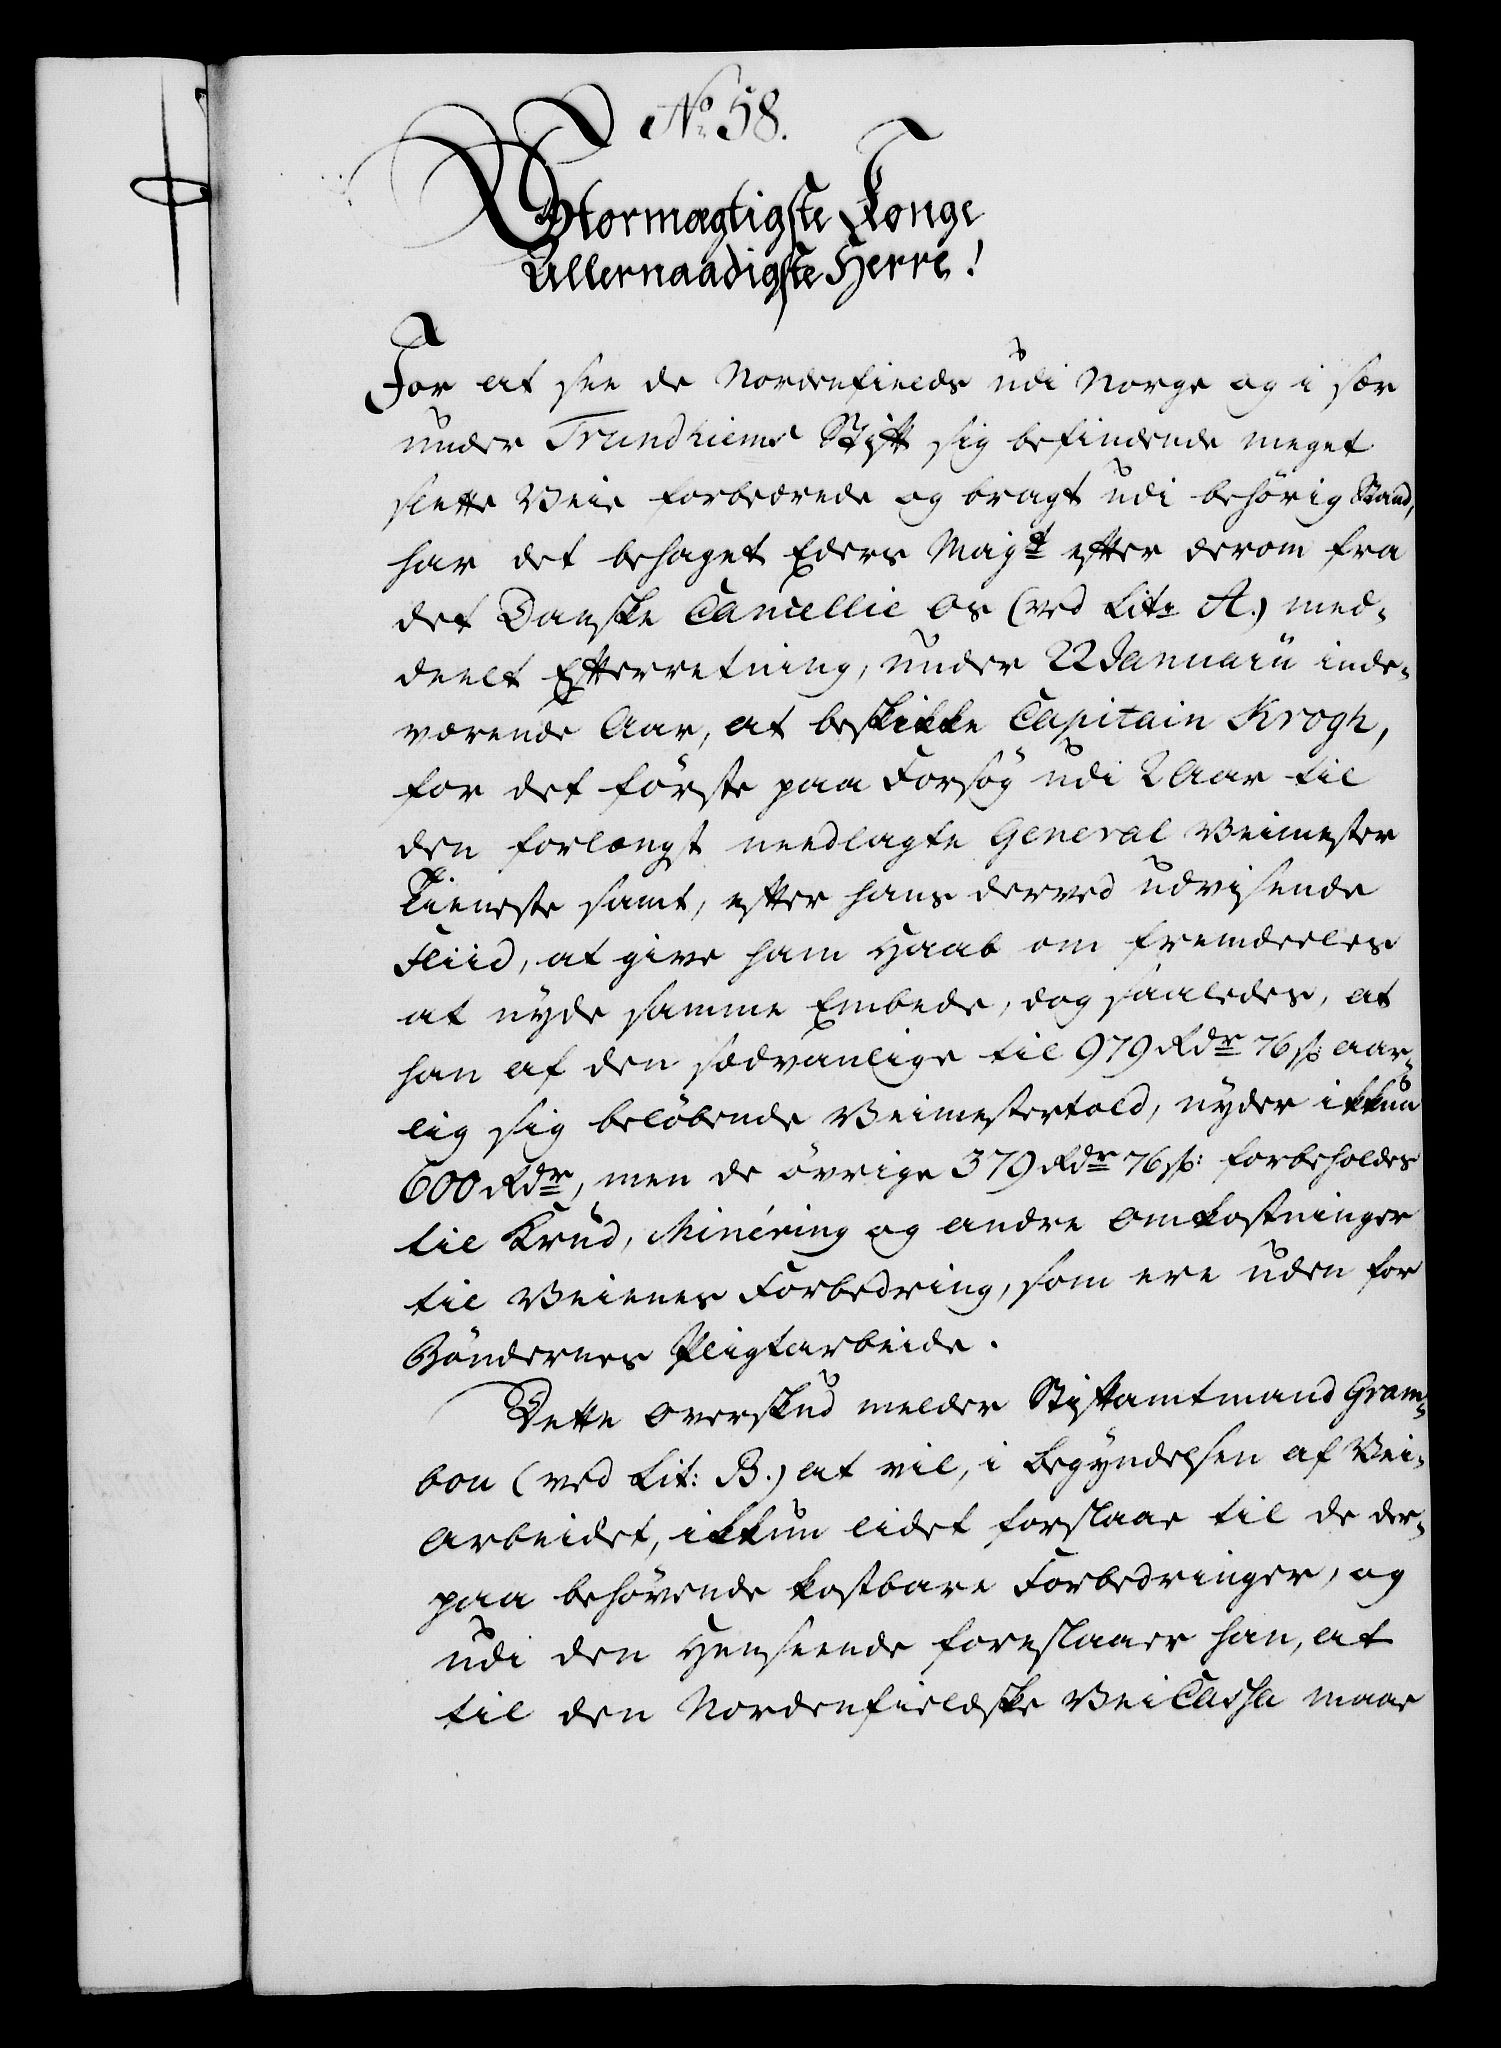 No 58.
Stormægtigste Konge
Allernaadigste Herre!
For at see de Nordenfields udi Norge og i sær
under Trundhiems Stift sig befindende meget
slette Veie forbedrede og bragt udi behörig Stand,
har det behaget Eders Majt efter derom fra
det Danske Cancellie os (ved Litr A.) med-
deelt Efterretning, under 22 Januarii inde-
værende Aar, at beskikke Capitain Krogh,
for det förste paa Forsög udi 2 Aar til
den forlængst needlagte General Veimester
Tieneste samt, efter hans derved udvisende
Fliid, at give ham Haab om fremdeeles
at nyde samme Embede, dog saaledes, at
han af den sædvanlige til 979 Rdr 76 s: aar-
lig sig belöbende Veimestertold, nyder ikkun
600 Rdr, men de övrige 379 Rdr 76 s: forbeholdes
til Krud, Minéring og andre Omkostninger
til Veienes Forbedring, som ere uden for
Böndernes Pligtarbeide.
Dette Overskud melder Stiftamtmand Gram-
bou (ved Lit: B.) at vil, i Begyndelsen af Vei-
arbeidet, ikkun lidet forslaae til de der-
paa behövende kostbare Forbedringer, og
udi den Henseende foreslaaer han, at
til den Nordenfieldske Vei Cassa maae